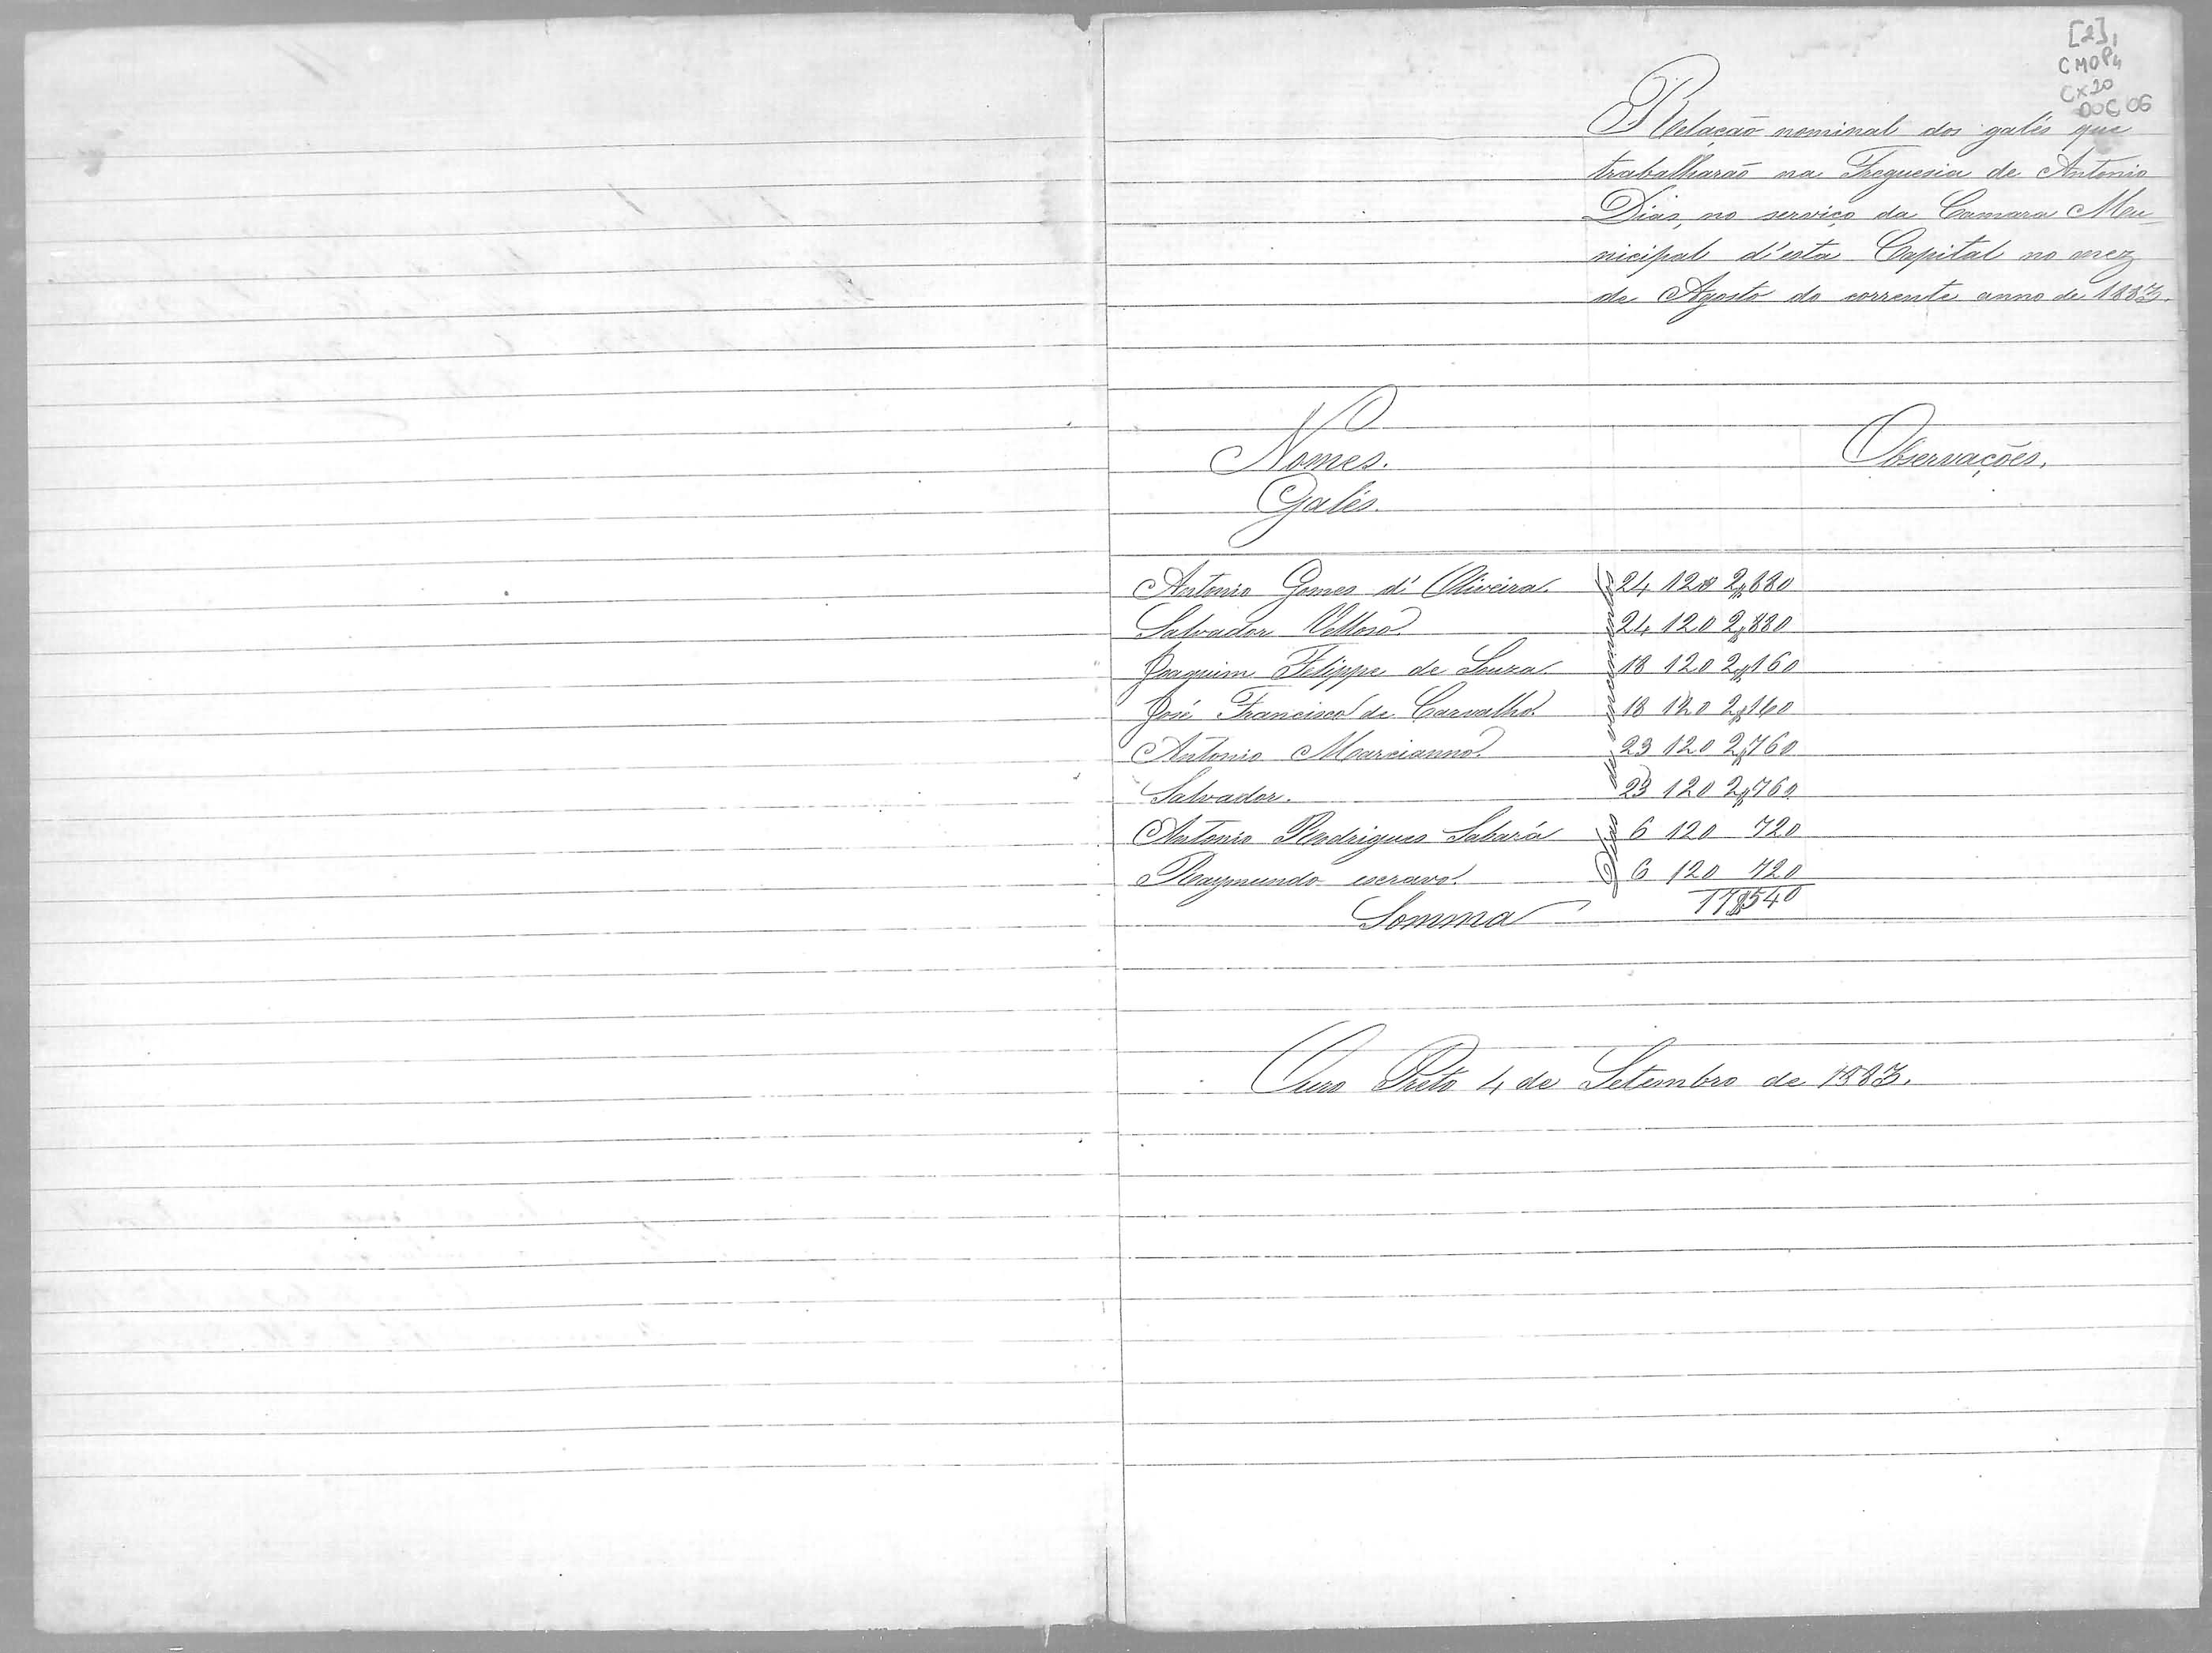 [2]
CMOP4
CX20
DOC 06
Relação nominal dos galés que
trabalharão na Freguesia de Antonio
Dias, no serviço da Camara Mu-
nicipal d'esta Capital no mez
de Agosto do corrente anno de 1883.
Nomes. Observações.
Galés.
Dias de vencimentos
Antonio Gomes d'Oliveira. 24 120 2$880
Salvador Velloso. 24 120 2$880
Joaquim Felippe de Souza. 18 120 2$160
José Francisco de Carvalho. 18 120 2$160
Antonio Marcianno. 23 120 2$760
Salvador. 23 120 2$760
Antonio Rodrigues Sabará 6 120 720
Raymundo escravo. 6 120 720
Somma 17$540
Ouro Preto 4 de Setembro de 1883.